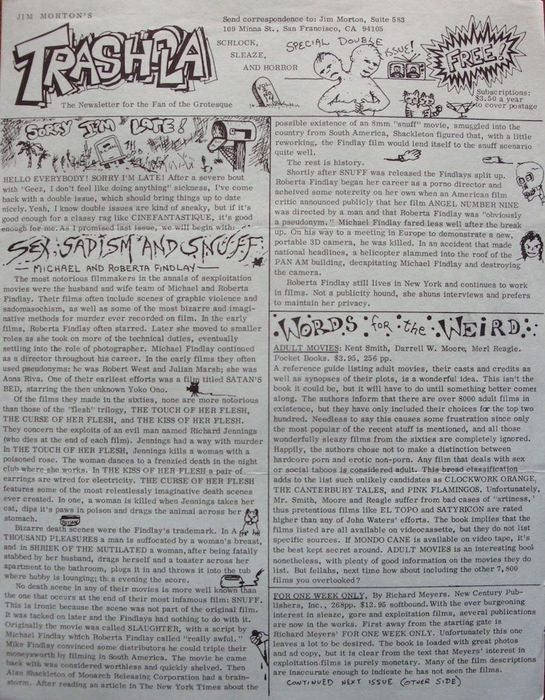 JIM MORTON'S
TRASHOLA
The Newsletter for the Fan of the Grotesque
Send correspondence to: Jim Morton, Suite 583
109 Minna St., San Francisco, CA 94105
SCHLOCK,
SLEAZE,
AND HORROR
SPECIAL DOUBLE
ISSUE!
FREE!
Subscriptions:
$3.50 a year
to cover postage
SORRY I'M LATE!
HELLO EVERYBODY! SORRY I'M LATE! After a severe bout
with "Geez, I don't feel like doing anything" sickness, I've come
back with a double issue, which should bring things up to date
nicely. Yeah, I know double issues are kind of sneaky, but if it's
good enough for a classy rag like CINEFANTASTIQUE, it's good
enough for me. As I promised last issue, we will begin with:
SEX, SADISM AND SNUFF:
— MICHAEL AND ROBERTA FINDLAY
The most notorious filmmakers in the annals of sexploitation
movies were the husband and wife team of Michael and Roberta
Findlay. Their films often include scenes of graphic violence and
sadomasochism, as well as some of the most bizarre and imagi-
native methods for murder ever recorded on film. In the early
films, Roberta Findlay often starred. Later she moved to smaller
roles as she took on more of the technical duties, eventually
settling into the role of photographer. Michael Findlay continued
as a director throughout his career. In the early films they often
used pseudonyms: he was Robert West and Julian Marsh; she was
Anna Riva. One of their earliest efforts was a film titled SATAN'S
BED, starring the then unknown Yoko Ono.
Of the films they made in the sixties, none are more notorious
than those of the "flesh" trilogy, THE TOUCH OF HER FLESH,
THE CURSE OF HER FLESH, and THE KISS OF HER FLESH.
They concern the exploits of an evil man named Richard Jennings
(who dies at the end of each film). Jennings had a way with murder
in THE TOUCH OF HER FLESH, Jennings kills a woman with a
poisoned rose. The woman dances to a frenzied death in the night
club where she works. In THE KISS OF HER FLESH a pair of
earrings are wired for electricity. THE CURSE OF HER FLESH
features some of the most relentlessly imaginative death scenes
ever created. In one, a woman is killed when Jennings takes her
cat, dips it's paws in poison and drags the animal across her
stomach.
Bizarre death scenes were the Findlay's trademark. In A
THOUSAND PLEASURES a man is suffocated by a woman's breast,
and in SHRIEK OF THE MUTILATED a woman, after being fatally
stabbed by her husband, drags herself and a toaster across her
apartment to the bathroom, plugs it in and throws it into the tub
where hubby is lounging; thus evening the score.
No death scene in any of their movies is more well known than
the one that occurs at the end of their most infamous film: SNUFF.
This is ironic because the scene was not part of the original film.
It was tacked on later and the Findlays had nothing to do with it.
Originally the movie was called SLAUGHTER, with a script by
Michael Findlay which Roberta Findlay called "really awful."
Mike Findlay convinced some distributors he could triple their
moneysworth by filming in South America. The movie he came
back with was considered worthless and quickly shelved. Then
Alan Shackleton of Monarch Releasing Corporation had a brain-
storm. After reading an article in The New York Times about the
possible existence of an 8mm "snuff" movie, smuggled into the
country from South America, Shackleton figured that, with a little
reworking, the Findlay film would lend itself to the snuff scenario
quite well.
The rest is history.
Shortly after SNUFF was released the Findlays split up.
Roberta Findlay began her career as a porno director and
acheived some notoreity on her own when an American film
critic announced publicly that her film ANGEL NUMBER NINE
was directed by a man and that Roberta Findlay was "obviously
a pseudonym." Michael Findlay fared less well after the break
up. On his way to a meeting in Europe to demonstrate a new,
portable 3D camera, he was killed. In an accident that made
national headlines, a helicopter slammed into the roof of the
PAN AM building, decapitating Michael Findlay and destroying
the camera.
Roberta Findlay still lives in New York and continues to work
in films. Not a publicity hound, she shuns interviews and prefers
to maintain her privacy.
WORDS for the WEIRD
ADULT MOVIES: Kent Smith, Darrell W. Moore, Merl Reagle.
Pocket Books. $3.95, 256 pp.
A reference guide listing adult movies, their casts and credits as
well as synopses of their plots, is a wonderful idea. This isn't the
book it could be, but it will have to do until something better comes
along. The authors inform that there are over 8000 adult films in
existence, but they have only included their choices for the top two
hundred. Needless to say this causes some frustration since only
the most popular of the recent stuff is mentioned, and all those
wonderfully sleazy films from the sixties are completely ignored.
Happily, the authors chose not to make a distinction between
hardcore porn and erotic non-porn. Any film that deals with sex
or social taboos is considered adult. This broad classification
adds to the list such unlikely candidates as CLOCKWORK ORANGE,
THE CANTERBURY TALES, and PINK FLAMINGOS. Unfortunately,
Mr. Smith, Moore and Reagle suffer from bad cases of 'artiness,'
thus pretentious films like EL TOPO and SATYRICON are rated
higher than any of John Waters' efforts. The book implies that the
films listed are all available on videocassette, but they do not list
specific sources. If MONDO CANE is available on video tape, it's
the best kept secret around. ADULT MOVIES is an interesting book
nonetheless, with plenty of good information on the movies they
do list. But fellahs, next time how about including the other 7,800
films you overlooked?
FOR ONE WEEK ONLY, By Richard Meyers. New Century Pub-
lishers, Inc., 268pp. $12.95 softbound. With the ever burgeoning
interest in sleaze, gore and exploitation films, several publications
are now in the works. First away from the starting gate is
Richard Meyers' FOR ONE WEEK ONLY. Unfortunately this one
leaves a lot to be desired. The book is loaded with great photos
and ad copy, but it is clear from the text that Meyers' interest in
exploitation films is purely monetary. Many of the film descriptions
are inaccurate enough to indicate he has not seen the films.
CONTINUED NEXT ISSUE (OTHER SIDE)